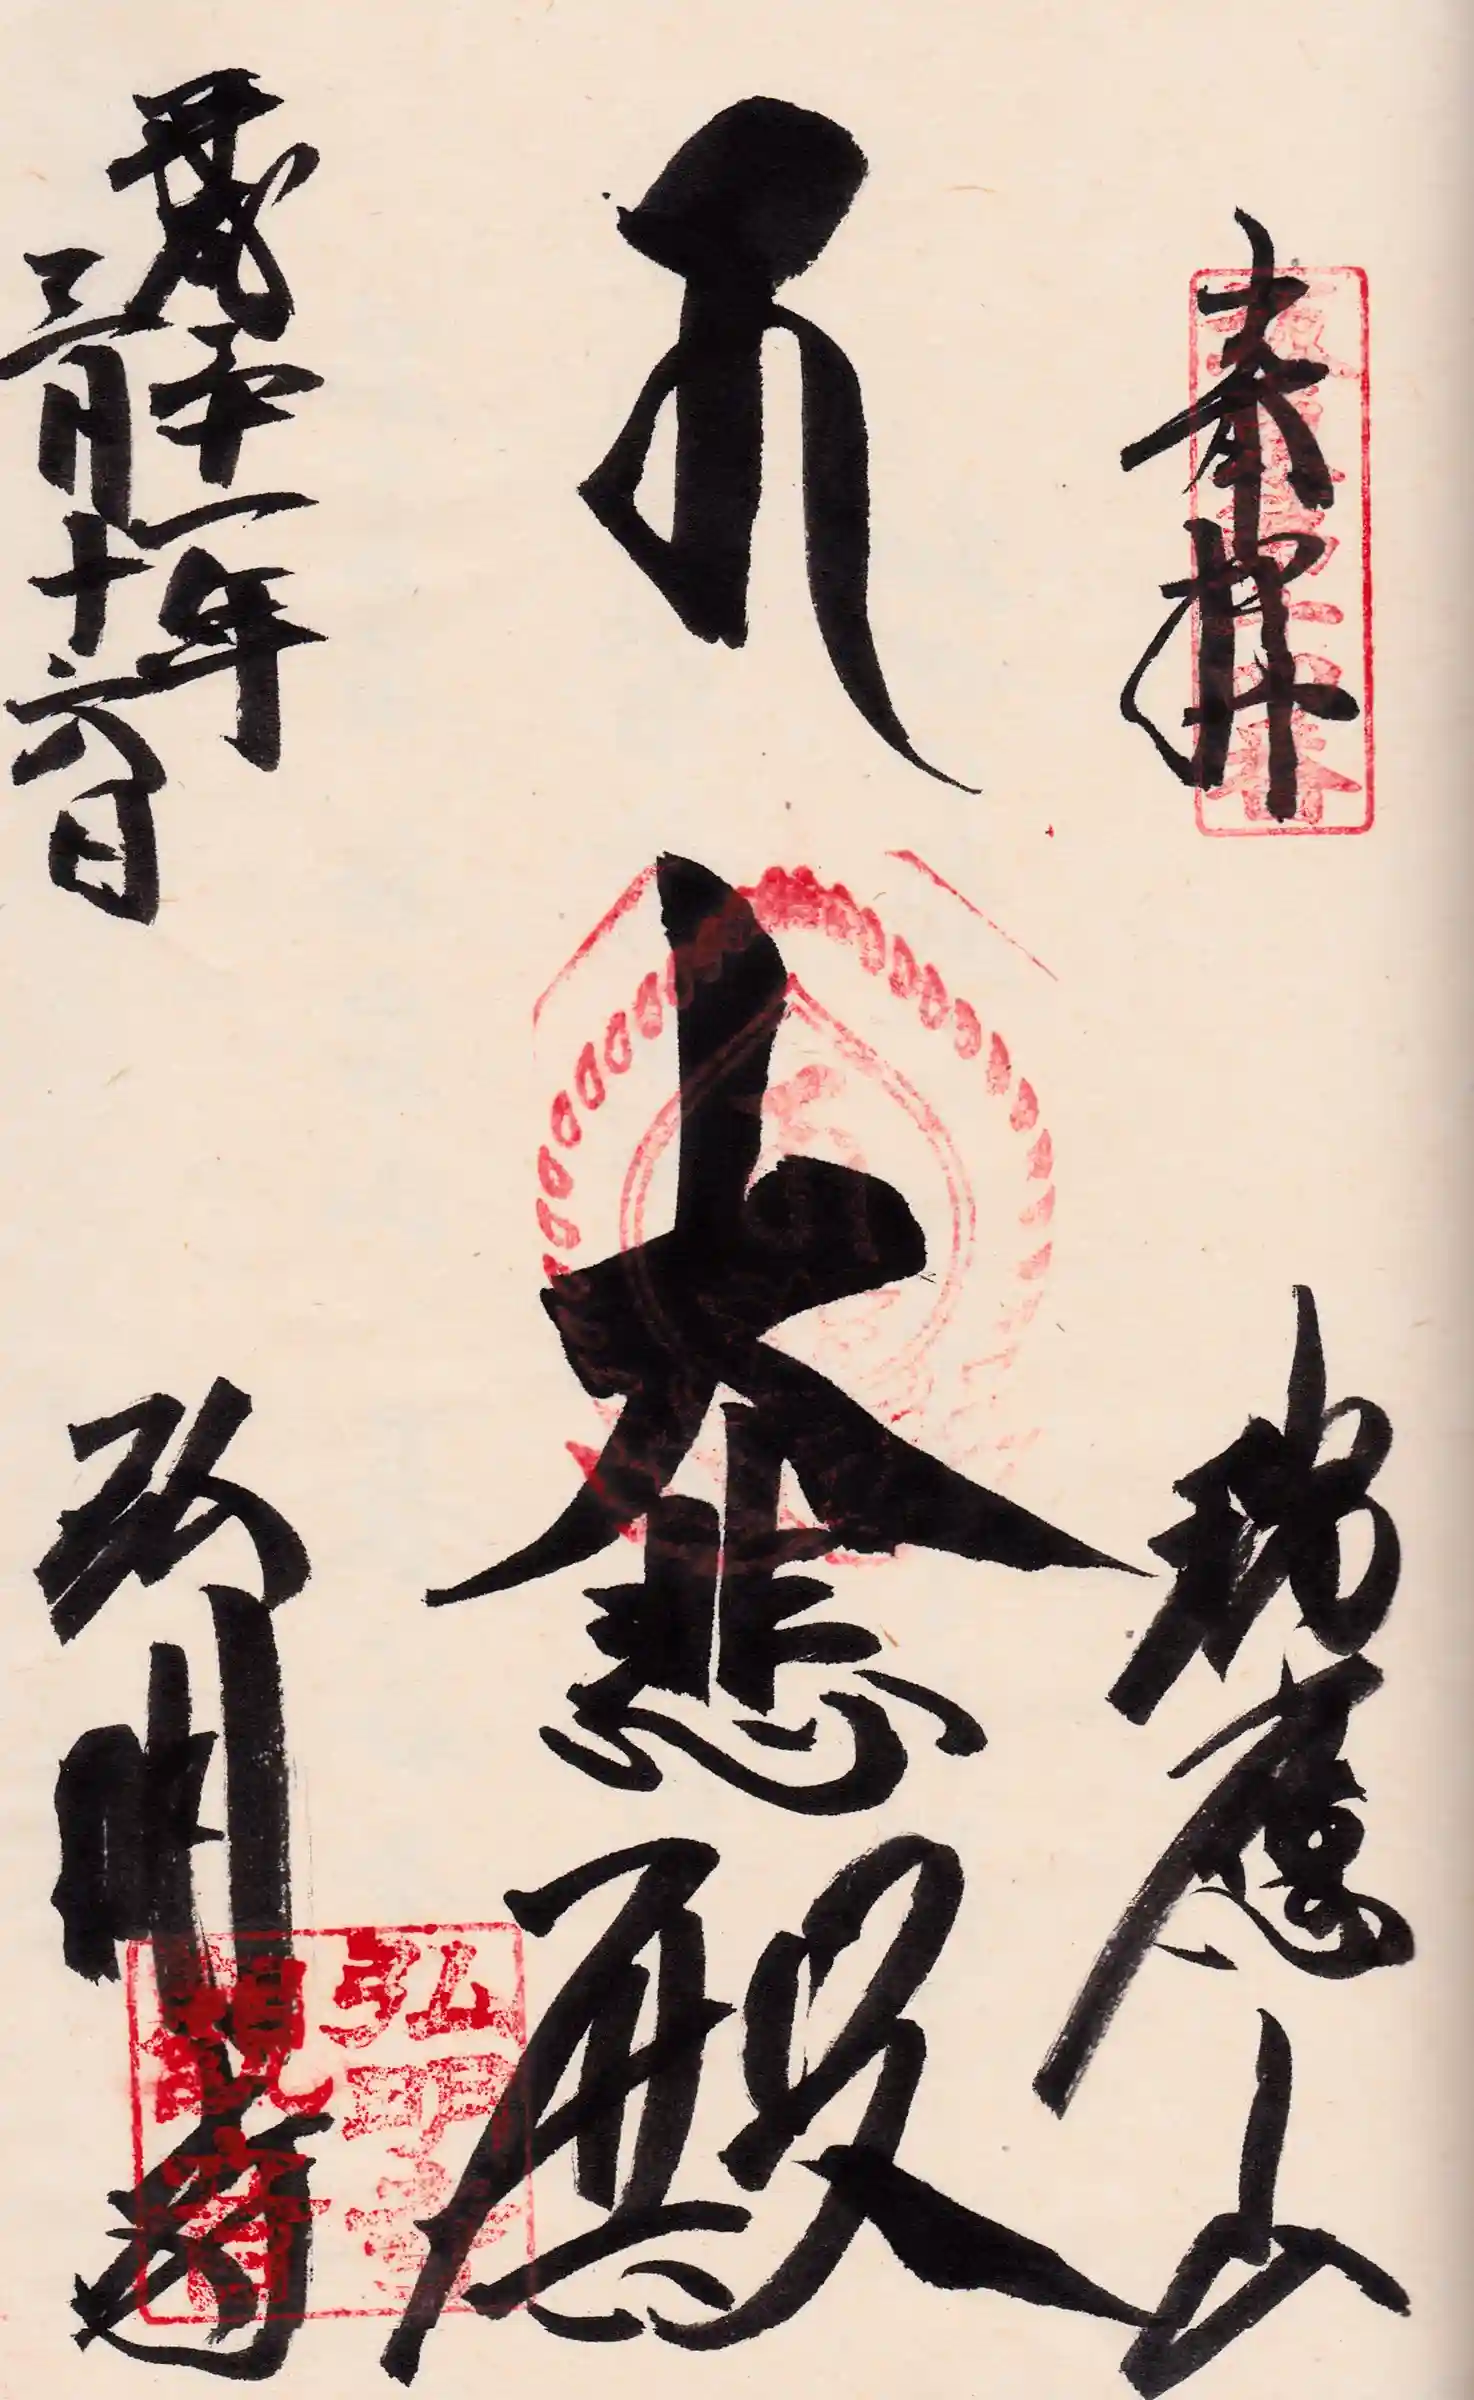 奉拝
瑞應山
大悲殿
平成二十一年
三月十六日
弘明寺
弘明寺